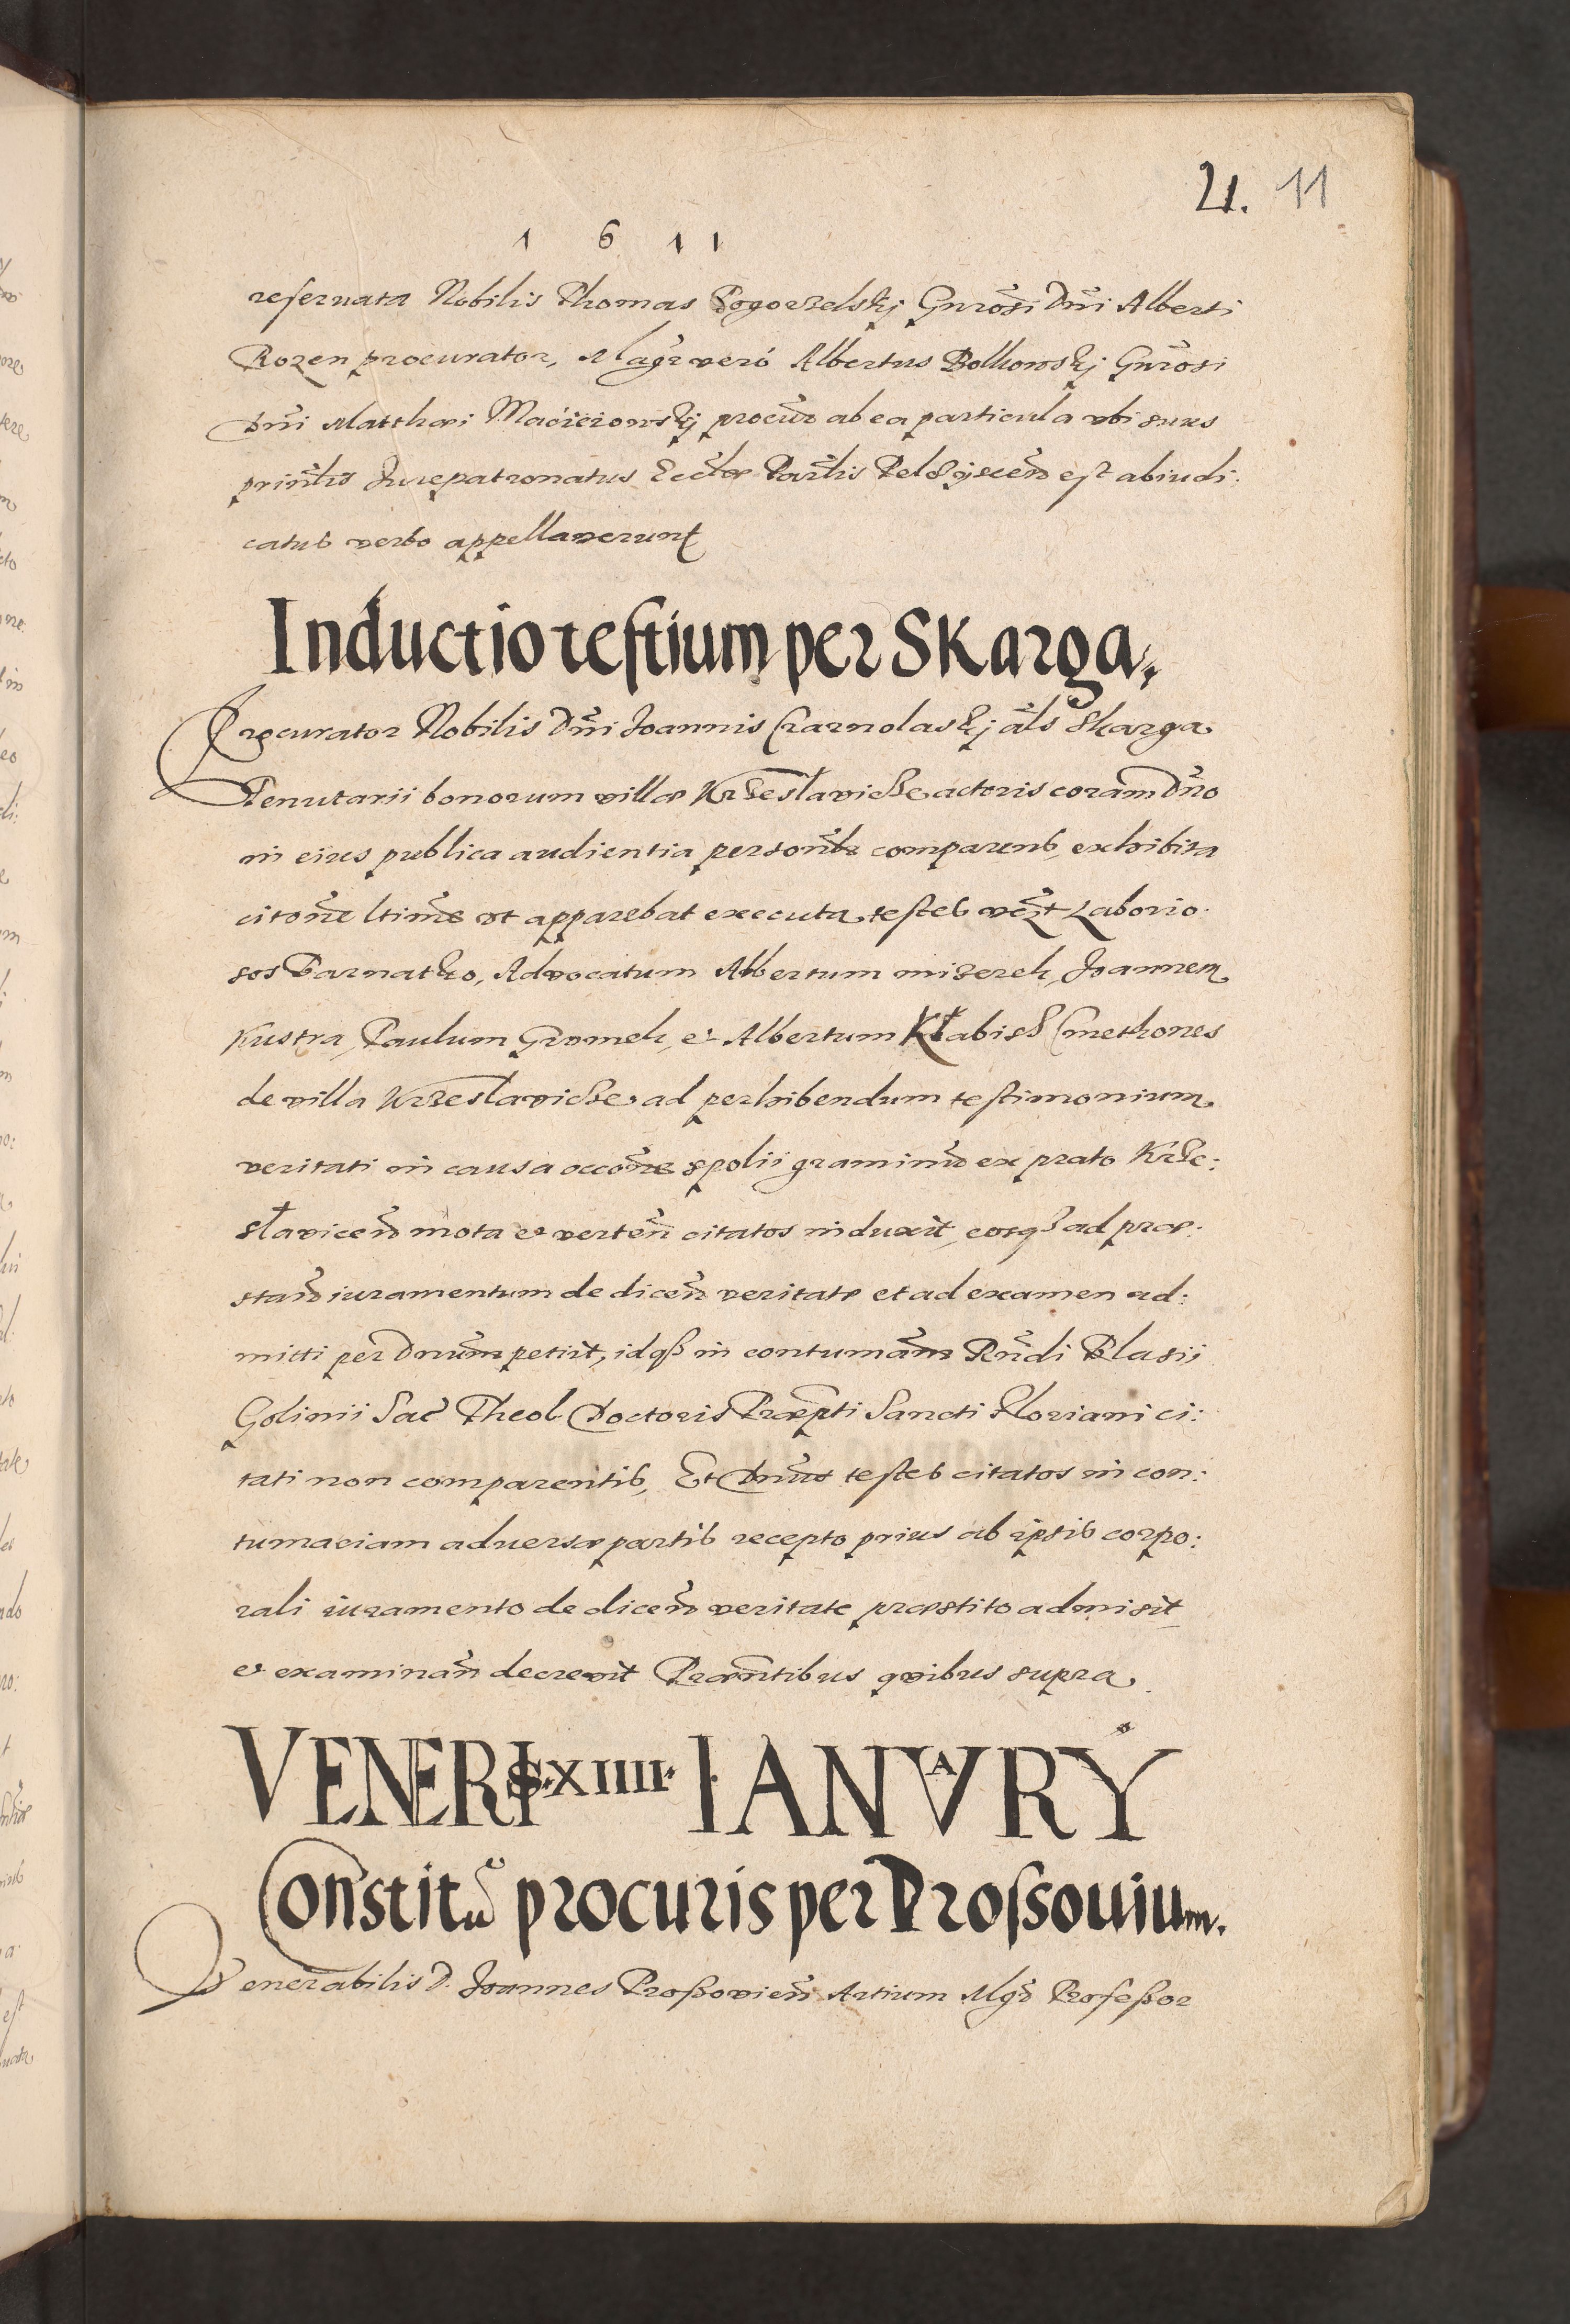 21. 11
1 6 11
reseruata Nobilis Thomas Pogorzelskj Gnrosi Dni Alberti
Rozen procurator, Magr vero Albertus Bolkowskj Gnrosi
Dni Matthæi Macieiowskj procur ab ea particula vbi suus
prinlis Jure patronatus Eccliæ Parlis est abiudi:
catus verbo appellauerunt
Inductio testium per Skarga.
Procurator Nobilis Dni Joannis Czarnolaskj als Skarga
Tenutarii bonorum villæ Krzesławicze actoris coram Dno
in eius publica audientia personlr comparens, exhibita
citone ltime vt apparebat executa, testes vezt Laborio:
sos Parnatko, Advocatum Albertum mizerek, Joannem
Kustra, Paulum Gromek, et Albertum Kłabisz Cmethones
de villa Krzesławicze ad perhibendum testimonium
veritati in causa occone spolii graminum ex prato Krze:
sławicen mota et verten citatos induxit, eosq3 ad præ:
stand iuramentum de dicen veritate et ad examen ad:
mitti per Dnum petiit, idq3 in contumam Rndi Blasii
Golinii Sac Theol. Doctoris Præpti Sancti Floriani ci:
tati non comparentis, Et Dnus testes citatos in con:
tumaciam aduersæ partis recepto prius ab ipsis corpo:
rali iuramento de dicen veritate præstito admisit
et examinan decrevit Præntibus quibus supra.
VENERIS. XIIII. IANVARY
Constitu procuris per Prossouium.
Venerabilis D. Joannes Proßovien Artium Mgr Profeßor